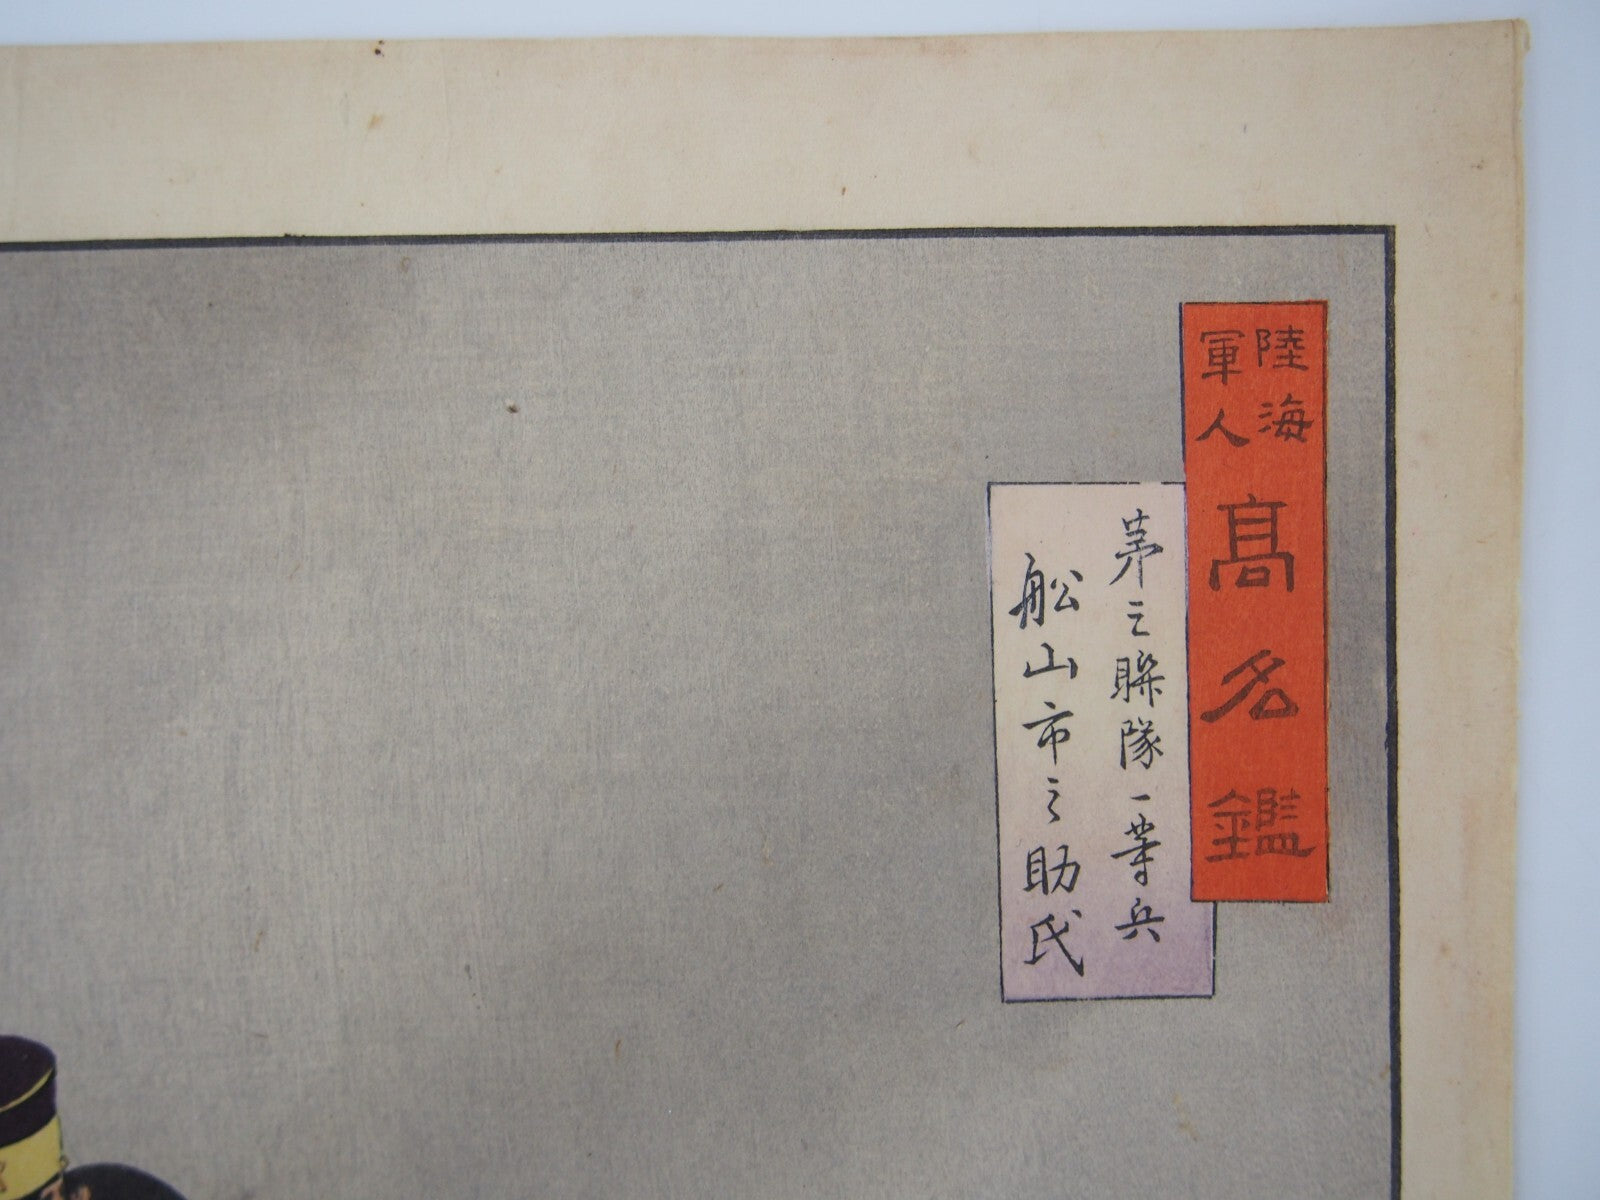 陸海
軍人
髙名鑑
第三聯隊一等兵
舩山市之助氏